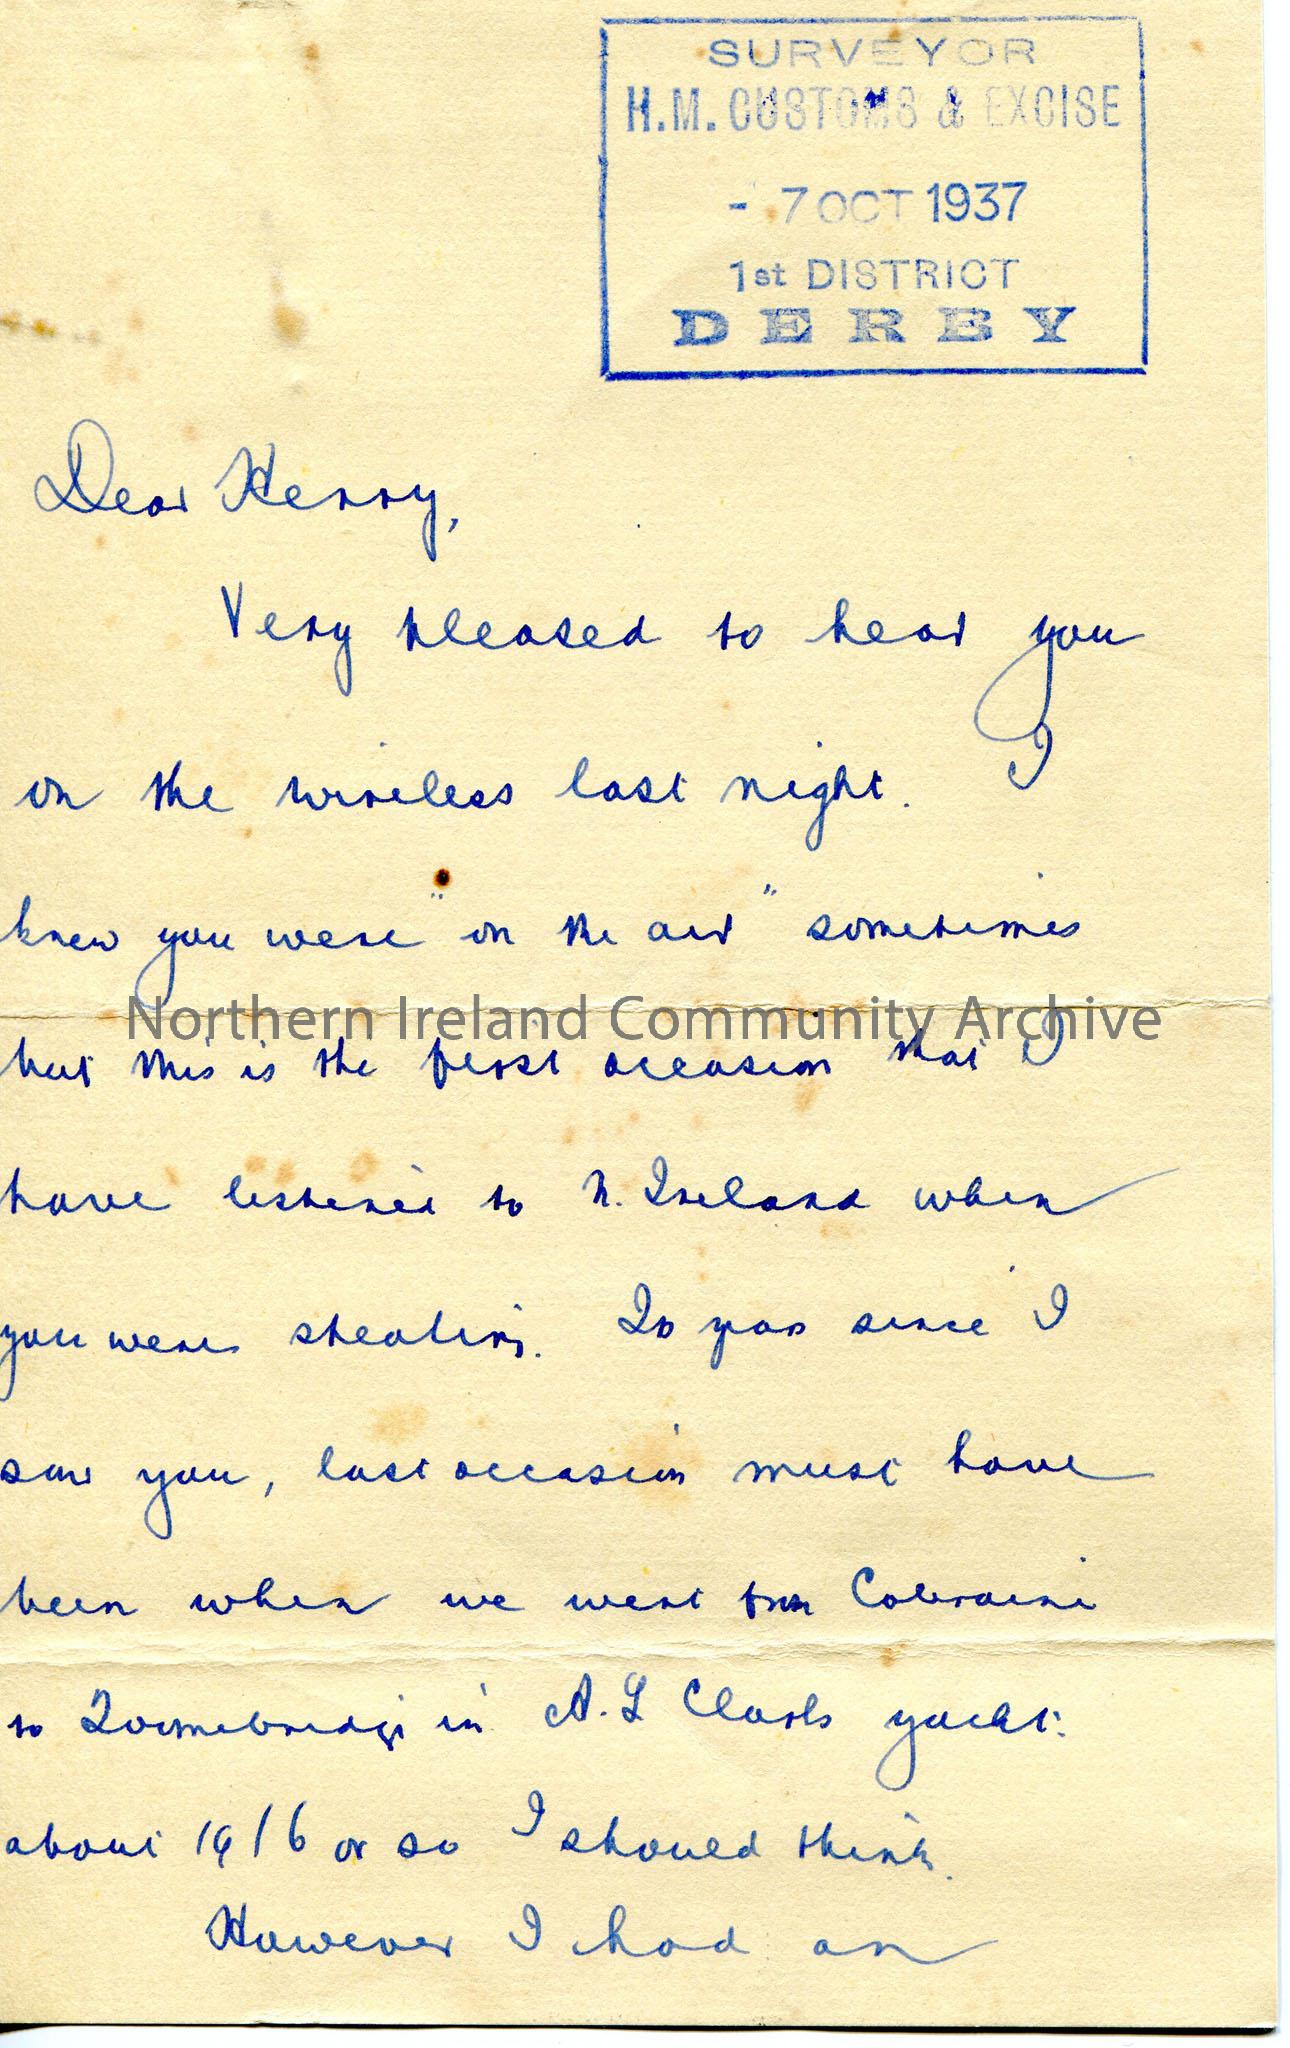 SURVEYOR
H.M. CUSTOMS & EXCISE
- 7 OCT 1937
1st DISTRICT
DERBY
Dear Henry,
Very pleased to hear you
on the wireless last night. I
knew you were "on the air" sometimes
but this is the first occasion that I
Northern Ireland Community Archive
have listened to N. Ireland when
you were speaking. 20 years since I
saw you, last occasion must have
been when we went from Coleraine
to Toomebridge in A. L Clarks yacht.
about 1916 or so I should think.
However I had an